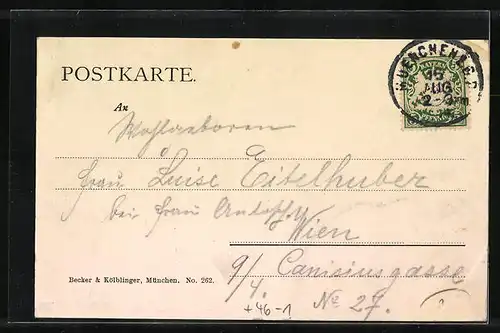 POSTKARTE.
MUENCHEN
16
AUG
2-3
BAYERN
PFENNIG
An
Wohlgeboren
Frau Luise Eitelhuber
bei Frau
Wien
9/4. Canisiusgasse
No 27.
Becker & Kölblinger, München. No. 262.
+46-1